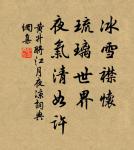 冰雪襟懷
琉璃世界
夜氣清如許
黃升酹江月夜凉詞典
佩熹